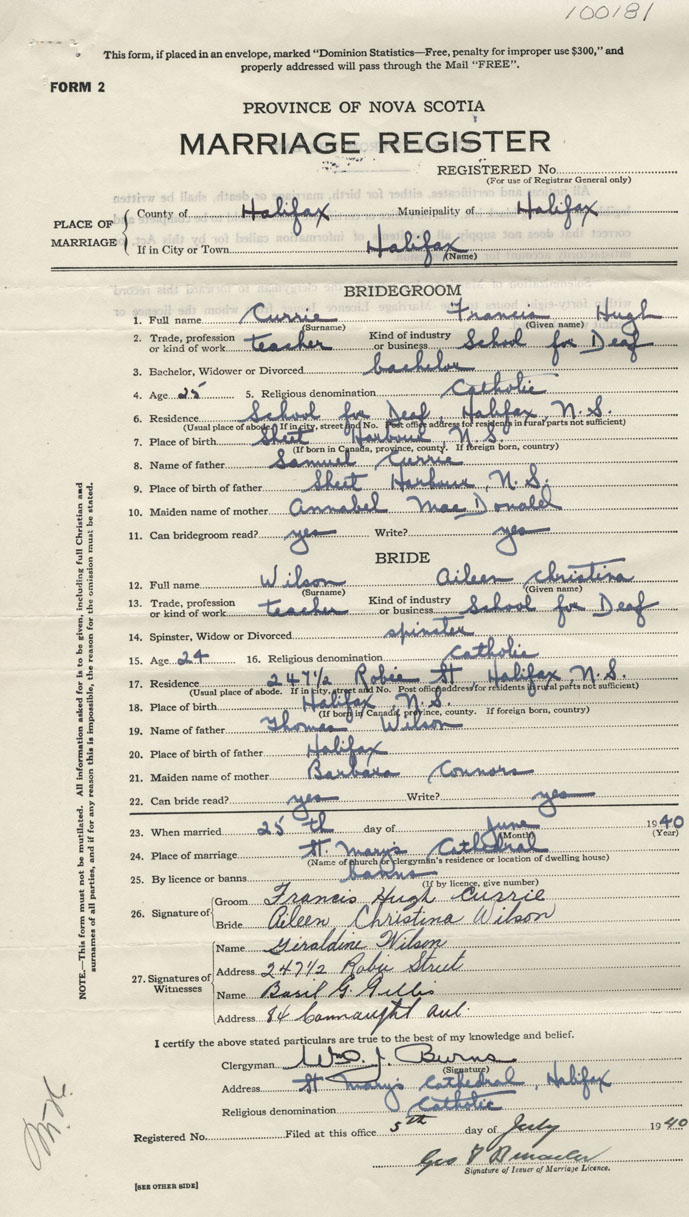 100181
This form, if placed in an envelope, marked "Dominion Statistics—Free, penalty for improper use $300," and
properly addressed will pass through the Mail "FREE".
FORM 2
PROVINCE OF NOVA SCOTIA
MARRIAGE REGISTER
REGISTERED No.
(For use of Registrar General only)
PLACE OF MARRIAGE
County of Halifax Municipality of Halifax
If in City or Town Halifax
(Name)
BRIDEGROOM
1. Full name Currie Francis Hugh
(Surname) (Given name)
2. Trade, profession or kind of work teacher Kind of industry or business School for Deaf
3. Bachelor, Widower or Divorced bachelor
4. Age 25 5. Religious denomination Catholic
6. Residence School for Deaf, Halifax, N.S.
(Usual place of abode. If in city, street and No. Post office address for residents in rural parts not sufficient)
7. Place of birth Sheet Harbour N.S.
(If born in Canada, province, county. If foreign born, country)
8. Name of father Samuel Currie
9. Place of birth of father Sheet Harbour, N.S.
10. Maiden name of mother Annabel MacDonald
11. Can bridegroom read? yes Write? yes
BRIDE
12. Full name Wilson Aileen Christina
(Surname) (Given name)
13. Trade, profession or kind of work teacher Kind of industry or business School for Deaf
14. Spinster, Widow or Divorced spinster
15. Age 24 16. Religious denomination Catholic
17. Residence 247½ Robie St, Halifax, N.S.
(Usual place of abode. If in city, street and No. Post office address for residents in rural parts not sufficient)
18. Place of birth Halifax, N.S.
(If born in Canada, province, county. If foreign born, country)
19. Name of father Thomas Wilson
20. Place of birth of father Halifax
21. Maiden name of mother Barbara Connors
22. Can bride read? yes Write? yes
23. When married 25th day of June 1940
(Month) (Year)
24. Place of marriage St. Mary's Cathedral
(Name of church or clergyman's residence or location of dwelling house)
25. By licence or banns banns
(If by licence, give number)
26. Signature of
Groom Francis Hugh Currie
Bride Aileen Christina Wilson
27. Signatures of Witnesses
Name Geraldine Wilson
Address 247½ Robie Street
Name Basil G. Gillis
Address 84 Connaught Ave.
I certify the above stated particulars are true to the best of my knowledge and belief.
Clergyman Wm. J. Burns
(Signature)
Address St Mary's Cathedral, Halifax
Religious denomination Catholic
Registered No. Filed at this office 5th day of July 1940
Geo
Signature of Issuer of Marriage Licence.
[SEE OTHER SIDE]
NOTE.—This form must not be mutilated. All information asked for is to be given, including full Christian and
surnames of all parties, and if for any reason this is impossible, the reason for the omission must be stated.